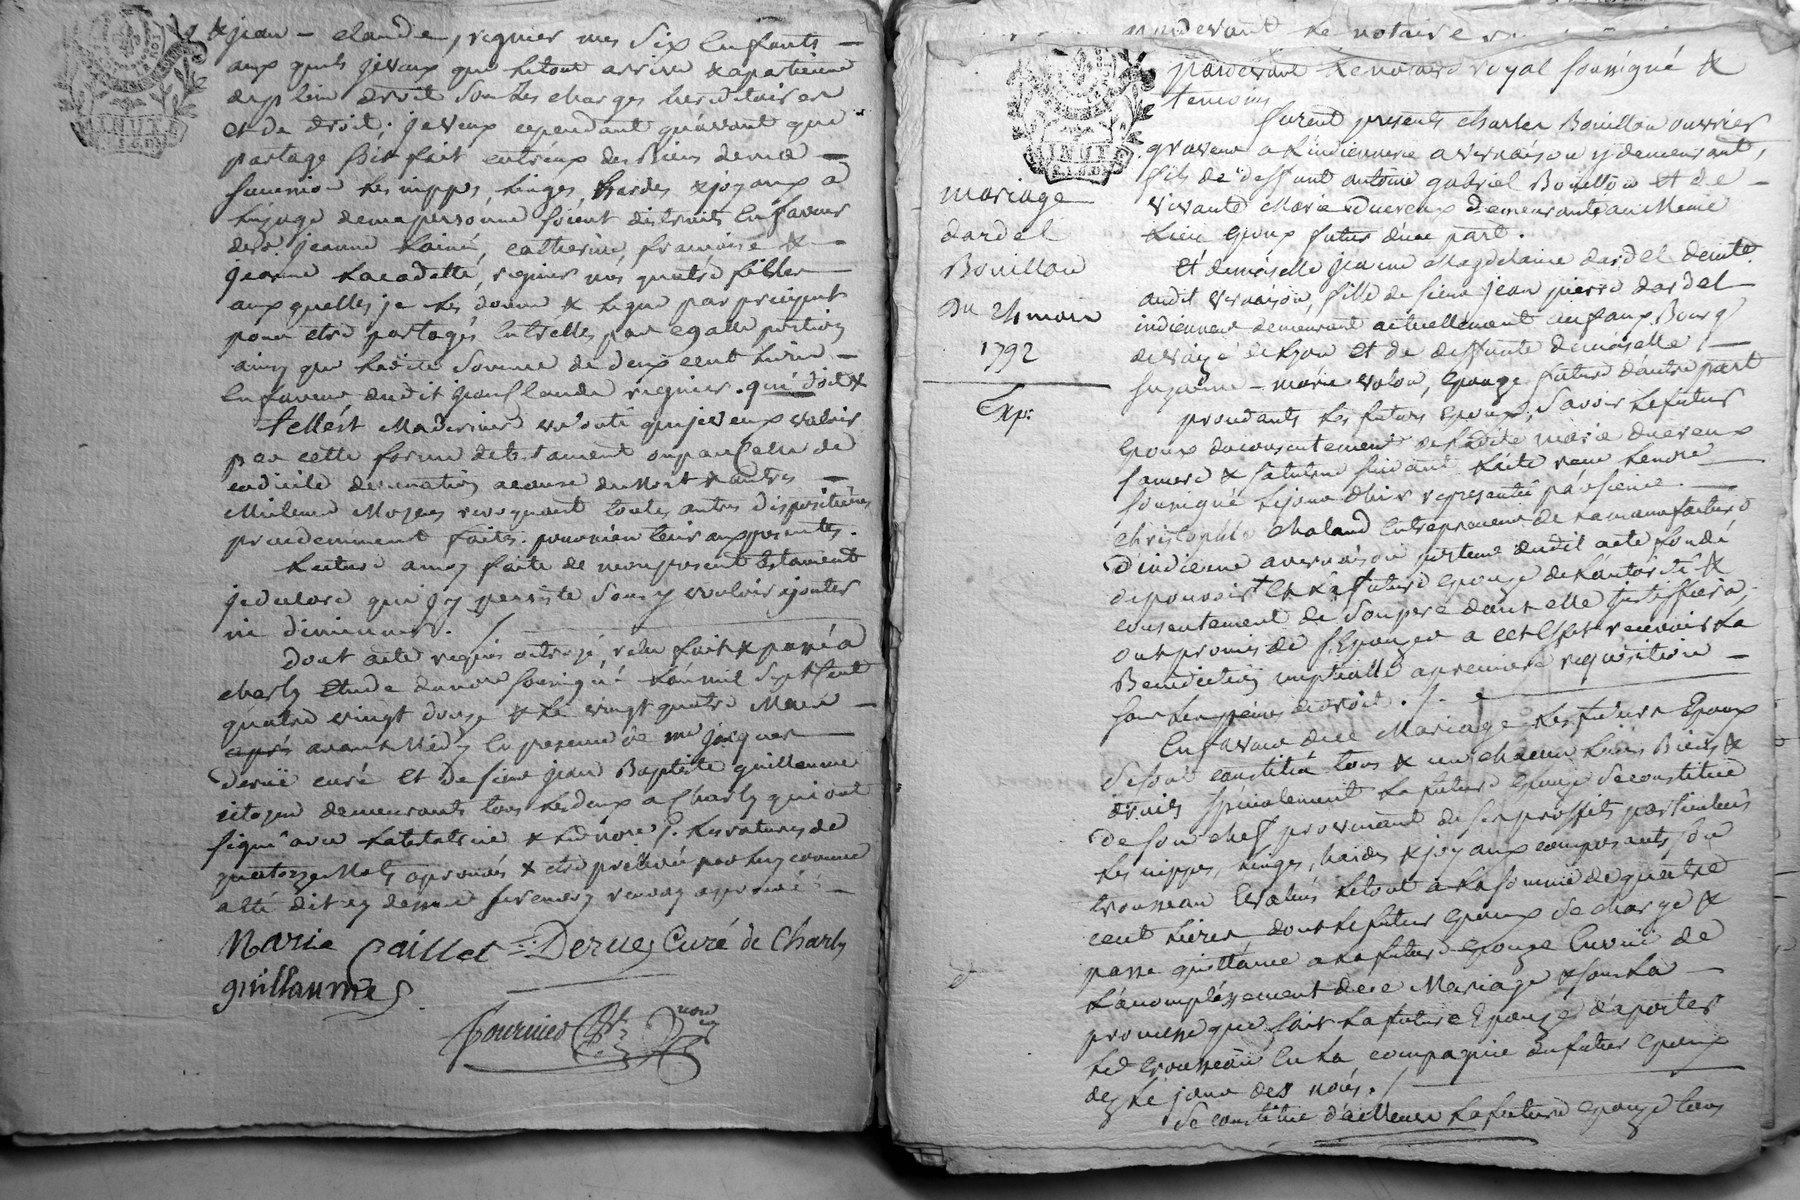 & jean - claude, regnier mes six Enfants -
aux quels je veux que le tout arrive & apartienne
de plein droit sous les charges hereditaires
et de droit. je veux cependant qu'avant que
partage soit fait entr'eux des Biens de ma -
succession les nippes, linges, hardes & joyaux a
l'uzage de ma personne soient distraits En faveur
de jeanne Lainé, catherine, francoise & -
jeanne La cadette, regnier mes quatre filles -
aux quelles je les donne & legue par preciput
pour etre partagés Entr'elles par egalle portion
ainsy que ladite somme de deux cent livres -
En faveur dudit jean Claude regnier.
telle est Ma derniere volonté que je veux valoir
par cette forme de testament ou par celle de
codicile donnation a cause de Mort & autres -
Meilleurs Moyens revoquant toutes autres dispositions
precedemment faites. pour m'en tenir aux presentes.
Lecture a moy faite de mon present testament
je declare que j'y persiste sans y vouloir ajouter
ni diminuer. /
Dont acte requis octroyé, relu fait & passé a
charly Etude du no.re soussigné L'an mil sept Cent
quatre vingt douze & le vingt quatre Mars -
après avant Midy En presence de m.re jacques
Derue curé et de sieur jean Baptiste guillaume
citoyen demeurants tous les deux a Charly qui ont
signé avec la testatrice & led no.re les ratures de
quatorze Mots aprouvés &
Marie Caillet Derue Curé de Charly
guillaume
Fournier
pardevant Le notaire
pardevant Le notaire royal soussigné &
temoins
mariage
dardel
Bouillon
Du 24 mars
1792
Exp:
furent presents charles Bouillon ouvrier
graveur a L'indiennerie a vernaison y demeurant,
fils de deffunt antoine gabriel Bouillon et de -
vivante Marie ducreux demeurante au Meme
Lieu Epoux futur d'une part.
Et demoiselle jeanne Magdelaine dardel demte
audit vernaison, fille de sieur jean pierre dardel -
indienneur demeurant actuellement au faux Bourg
de vaize de Lyon et de deffunte demoiselle -
suzanne - marie volon, Epouze future d'autre part
procedants les futurs Epoux, savoir le futur
Epoux du consentement de ladite marie ducreux
sa mere & suivant L'acte recu Le no.re
soussigné Le jour d'hier representée par sieur -
christophle chaland Entrepreneur de la manufacture
d'indienne a vernaison porteur dudit acte fondé
de pouvoir Et La future Epouze de L'autorité &
consentement de son pere dont elle justiffiera,
ont promis de s'Epouzer a cet Effet recevoir La
Benediction nuptialle a premiere requisition -
sous les peines de droit. /
En faveur dece Mariage les futurs Epoux
se sont constitué tous & un chacun Leurs Biens &
droits specialement La future Epouze se constitue
de son chef provenant de ses proffits particuliers
Les nippes, linges, hardes & joyaux composants, son
trousseau Evalués Le tout a La somme de quatre
cent Livres dont Le futur Epoux se charge &
passe quittance a La future Epouze En vuë de
L'accomplissement dece Mariage & sous La -
promesse que fait La future Epouze d'aporter
Led trousseau En La compagnie du futur Epoux
dez Le jour des noces. /
Se constitue d'ailleurs La future Epouze tous